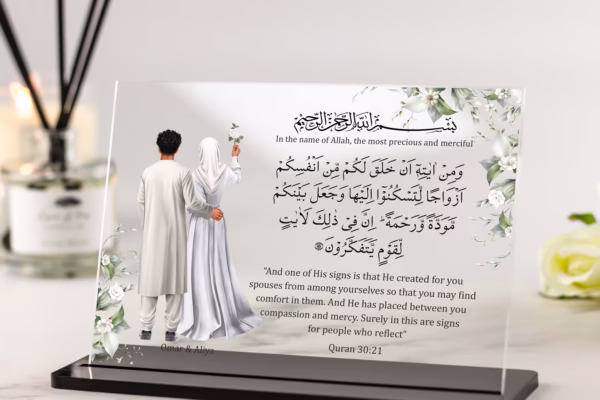 بسم الله الرحمن الرحيم
In the name of Allah, the most precious and merciful
وَمِنْ اٰيٰتِهٖٓ اَنْ خَلَقَ لَكُمْ مِّنْ اَنْفُسِكُمْ
اَزْوَاجًا لِّتَسْكُنُوْٓا اِلَيْهَا وَجَعَلَ بَيْنَكُمْ
مَّوَدَّةً وَّرَحْمَةً ؕ اِنَّ فِيْ ذٰلِكَ لَاٰيٰتٍ
لِّقَوْمٍ يَّتَفَكَّرُوْنَ
"And one of His signs is that He created for you
spouses from among yourselves so that you may find
comfort in them. And He has placed between you
compassion and mercy. Surely in this are signs
for people who reflect"
Quran 30:21
Omar & Aliya